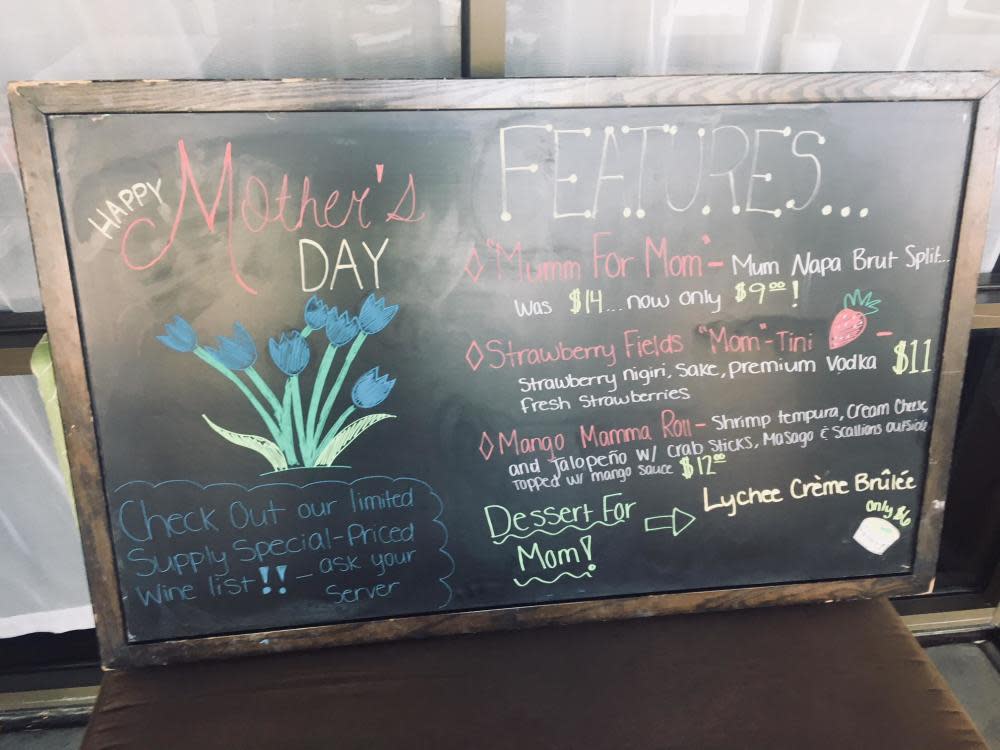 HAPPY
Mother's
DAY
Check Out our limited
Supply Special-Priced
Wine list!! - ask your
Server
FEATURES...
◊ "Mumm For Mom" - Mum Napa Brut Split...
was $14... now only $9.00!
◊ Strawberry Fields "Mom"-Tini - $11
Strawberry nigiri, Sake, premium Vodka
fresh Strawberries
◊ Mango Mamma Roll - Shrimp tempura, Cream Cheese,
and Jalapeño w/ crab Sticks, Masago & Scallions outside
Topped w/ mango sauce $12.00
Dessert For
Mom!
⇨ Lychee Crème Brûlée
only $6